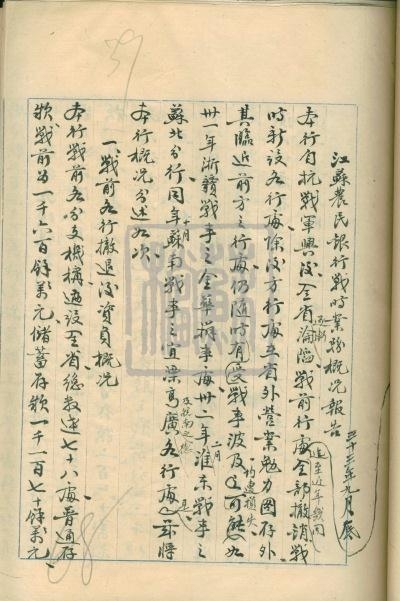 江蘇農民銀行戰時業務概況報告 三十三年九月底
本行自抗戰軍興後全省逐漸淪陷戰前行處全部撤消戰
時新設各行處除後方行處在省外營業勉力圖存外
其臨近前方之行處仍隨時有受戰事波及之可能如
卅一年浙贛戰事之金華辦事處卅二年二月淮東戰事之
蘇北分行同年十月蘇南戰事之宜溧高廣各行處均遭損失
本行概況分述如次
一、戰前各行撤退後資負概況
本行戰前各分支機構遍設全省總數達七十八處普通存
款戰前為一千六百餘萬元儲蓄存款一千一百七十餘萬元